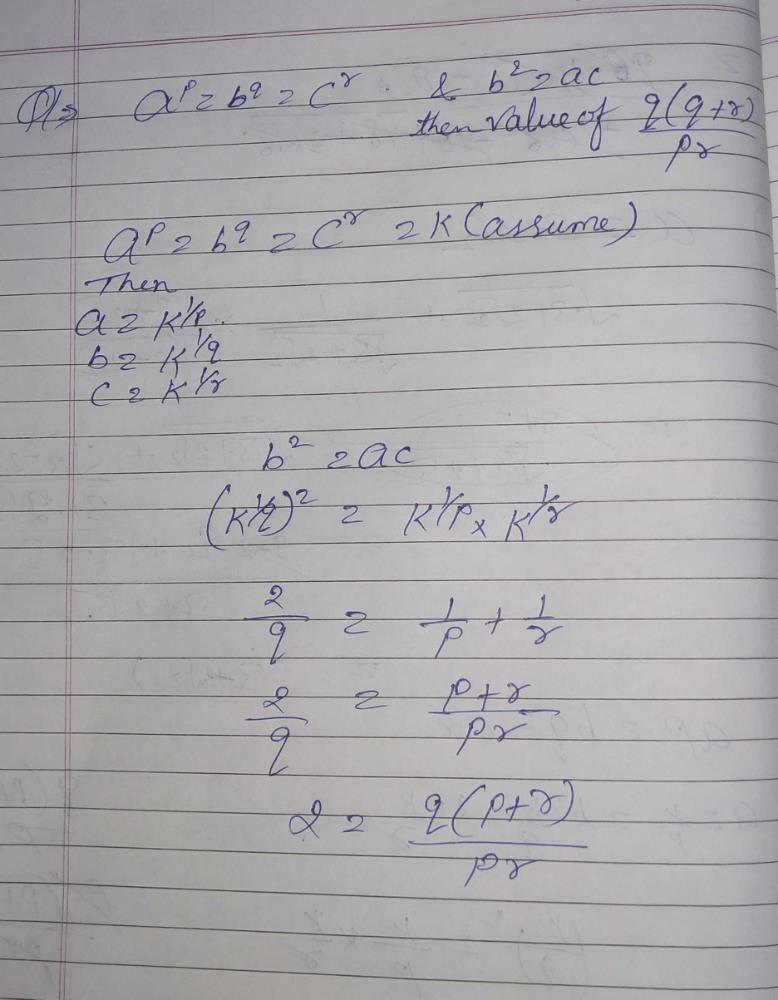 Q1⇒ a^p = b^q = c^r & b² = ac
then value of q(q+r)/pr
a^p = b^q = c^r = K (assume)
Then
a = K^1/p.
b = K^1/q
c = K^1/r
b² = ac
(K^1/q)² = K^1/p × K^1/r
2/q = 1/p + 1/r
2/q = p+r/pr
2 = q(p+r)/pr